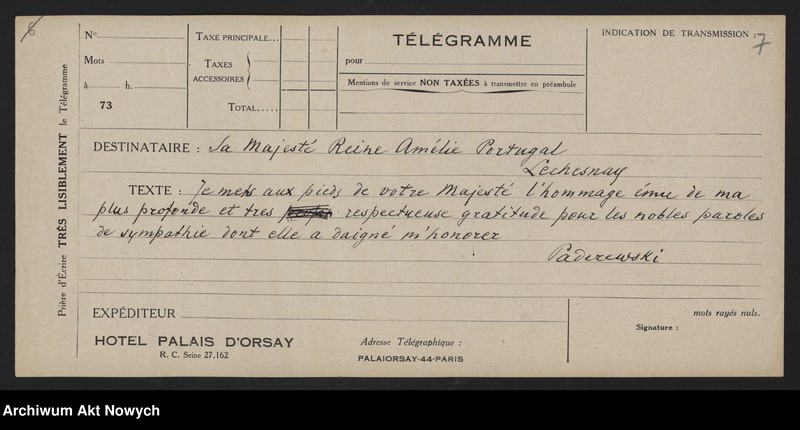 6
7
Nº
TAXE PRINCIPALE...
TÉLÉGRAMME
INDICATION DE TRANSMISSION :
Mots
TAXES ACCESSOIRES
pour
à h.
Mentions de service NON TAXÉES à transmettre en préambule
73
TOTAL.....
Prière d'Écrire TRÈS LISIBLEMENT le Télégramme
DESTINATAIRE : Sa Majesté Reine Amélie Portugal
Lechesnay
TEXTE : Je mets aux pieds de votre Majesté l'hommage ému de ma
plus profonde et tres respectueuse gratitude pour les nobles paroles
de sympathie dont elle a daigné m'honorer
Paderewski
EXPÉDITEUR
mots rayés nuls.
Signature :
HOTEL PALAIS D'ORSAY
R. C. Seine 27.162
Adresse Télégraphique :
PALAIORSAY-44-PARIS
Archiwum Akt Nowych